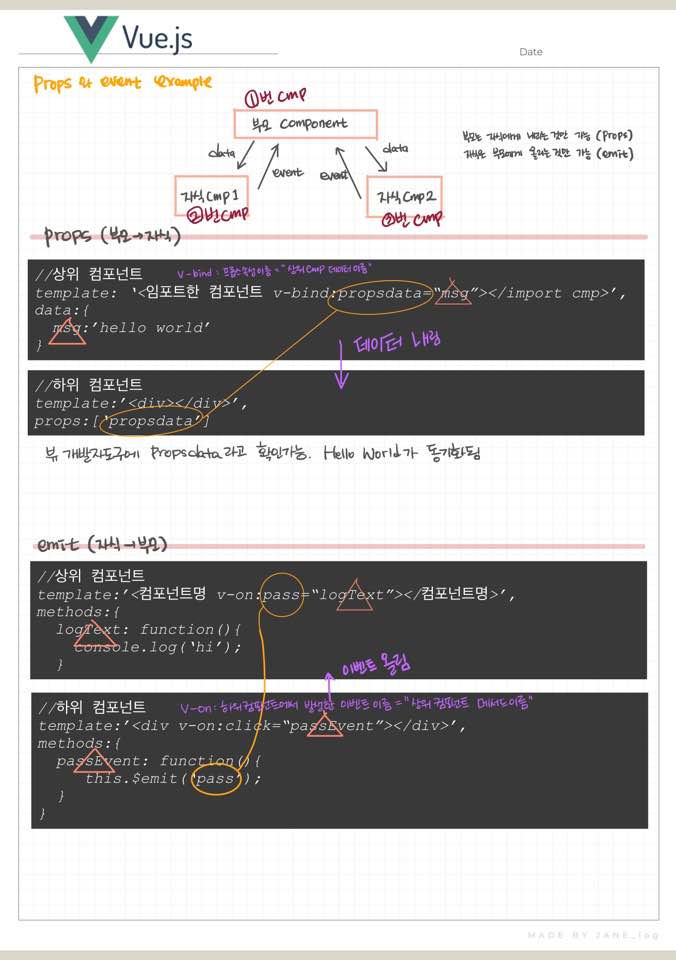 Vue.js
Date
Props 와 event example
①번 cmp
부모 component
data
data
event
event
부모는 자식에게 내리는것만 가능 (props)
자식은 부모에게 올리는것만 가능 (emit)
자식 cmp 1
자식 cmp 2
②번 cmp
③번 cmp
props (부모→자식)
//상위 컴포넌트
v-bind : 프롭스속성이름 = "상위 cmp 데이터 이름"
template: ‘<임포트한 컴포넌트 v-bind:propsdata=“msg”></import cmp>’,
data:{
msg:’hello world’
}
데이터 내림
//하위 컴포넌트
template:’<div></div>’,
props:[‘propsdata’]
뷰 개발자도구에 Propsdata 라고 확인가능. Hello World가 동기화됨
emit (자식→부모)
//상위 컴포넌트
template:’<컴포넌트명 v-on:pass=“logText”></컴포넌트명>’,
methods:{
logText: function(){
console.log(‘hi’);
}
이벤트 올림
//하위 컴포넌트
v-on : 하위컴포넌트에서 발생한 이벤트 이름 = "상위 컴포넌트 메서드이름"
template:’<div v-on:click=“passEvent”></div>’,
methods:{
passEvent: function(){
this.$emit(‘pass’);
}
}
MADE BY JANE_log